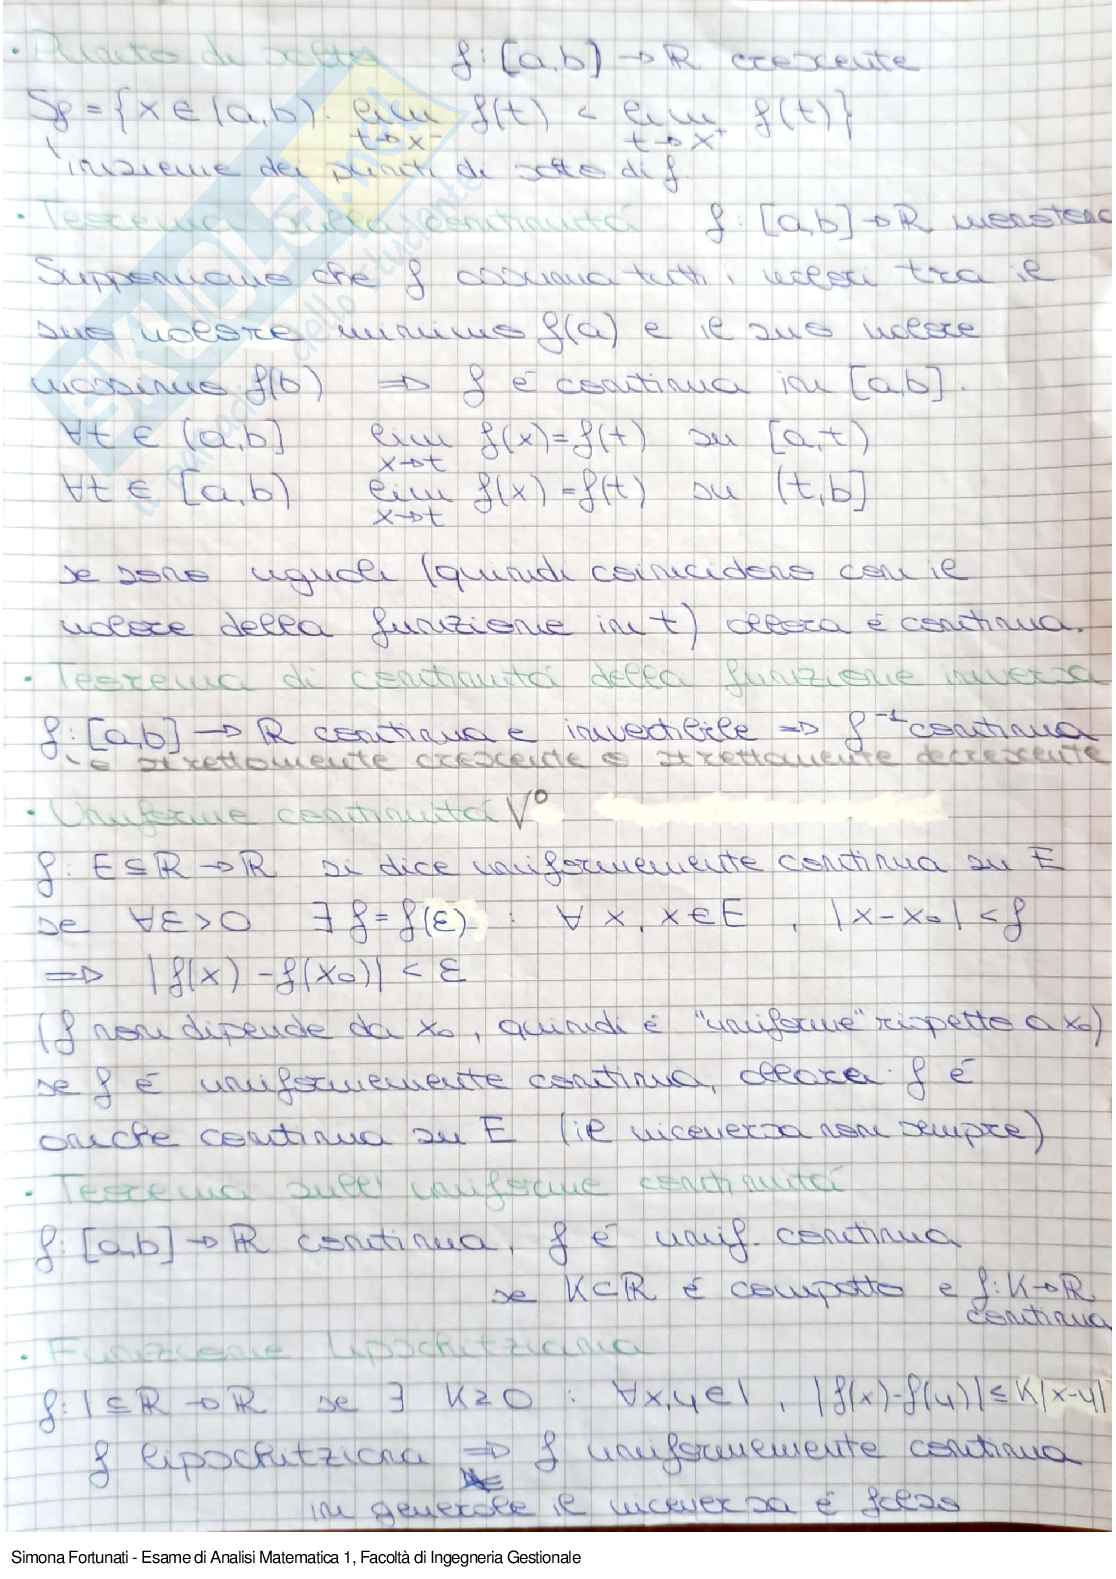 • Punto di salto f: [a,b] → ℝ crescente
Sf = {x ∈ (a,b): lim t→x⁻ f(t) < lim t→x⁺ f(t)}
insieme dei punti di salto di f
• Teorema sulla continuità f: [a,b] → ℝ monotona
Supponiamo che f assuma tutti i valori tra il
suo valore minimo f(a) e il suo valore
massimo f(b) ⇒ f è continua in [a,b].
∀t ∈ (a,b] lim x→t f(x)=f(t) su [a,t)
∀t ∈ [a,b) lim x→t f(x)=f(t) su (t,b]
se sono uguali (quindi coincidono con il
valore della funzione in t) allora è continua.
• Teorema di continuità della funzione inversa
f: [a,b] → ℝ continua e invertibile ⇒ f⁻¹ continua
è strettamente crescente o strettamente decrescente
• Uniforme continuità V°
f: E⊆ℝ → ℝ si dice uniformemente continua su E
se ∀ε>0 ∃ δ=δ(ε) : ∀ x, x∈E , |x-x₀| < δ
⇒ |f(x) - f(x₀)| < ε
(δ non dipende da x₀, quindi è "uniforme" rispetto a x₀)
se f è uniformemente continua, allora f è
anche continua su E (il viceversa non sempre)
• Teorema sull'uniforme continuità
f: [a,b] → ℝ continua, f è unif. continua
se K⊂ℝ è compatto e f: K→ℝ
continua
• Funzione lipschitziana
f: I ⊆ ℝ → ℝ se ∃ K≥0 : ∀x,y∈I , |f(x)-f(y)|≤K|x-y|
f lipschitziana ⇒ f uniformemente continua
in generale il viceversa è falso
SKUOLA.net
Simona Fortunati - Esame di Analisi Matematica 1, Facoltà di Ingegneria Gestionale